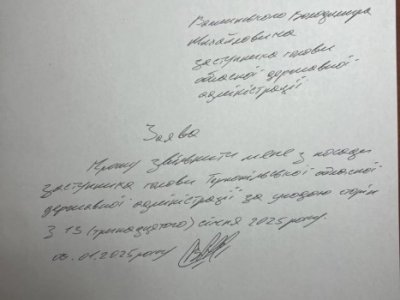 Важинського Володимира
Михайловича
заступника голови
обласної державної
адміністрації
Заява
Прошу звільнити мене з посади
заступника голови Тернопільської обласної
державної адміністрації за угодою сторін
з 13 (тринадцятого) січня 2025 року.
01.2025 року